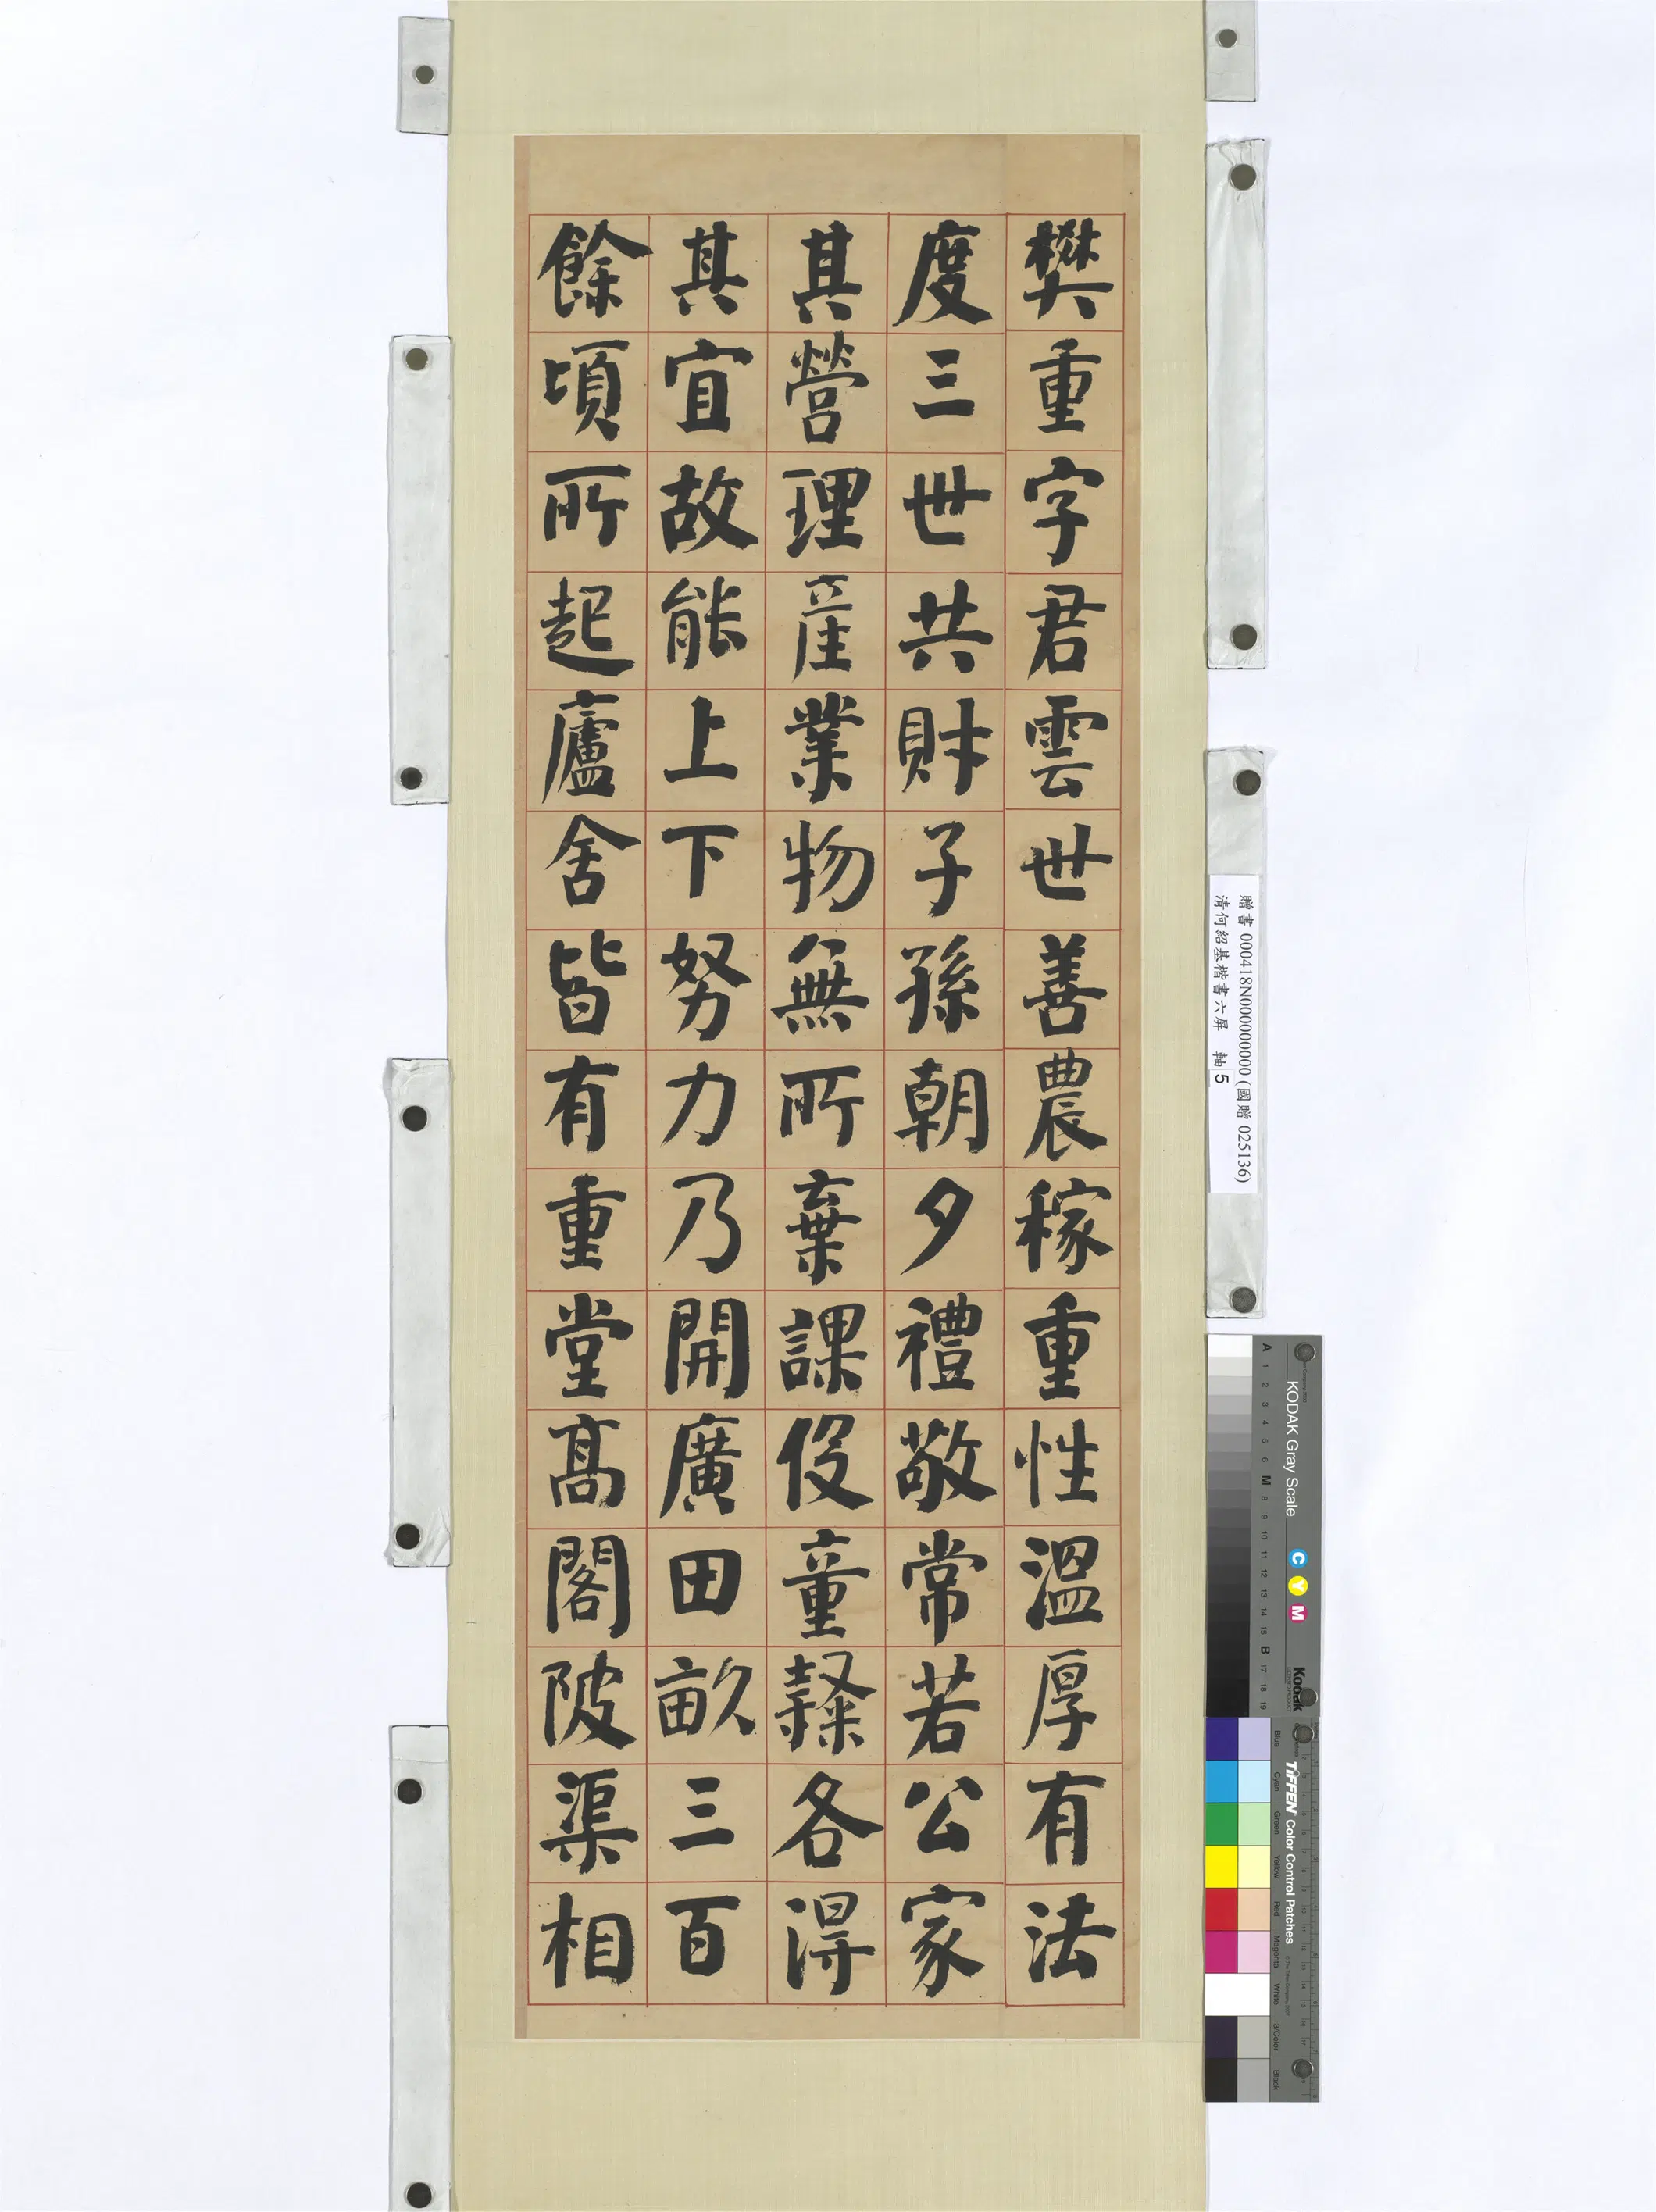 樊重字君雲世善農稼重性溫厚有法
度三世共財子孫朝夕禮敬常若公家
其營理產業物無所棄課伇童隸各得
其宜故能上下努力乃開廣田畝三百
餘頃所起廬舍皆有重堂高閣陂渠相
贈書 000418N000000000 (國贈 025136)
清何紹基楷書六屏 軸 5
KODAK Gray Scale
C Y M
Kodak
A 1 2 3 4 5 6 M 8 9 10 11 12 13 14 15 B 17 18 19
TIFFEN Color Control Patches
Blue Cyan Green Yellow Red Magenta White 3/Color Black